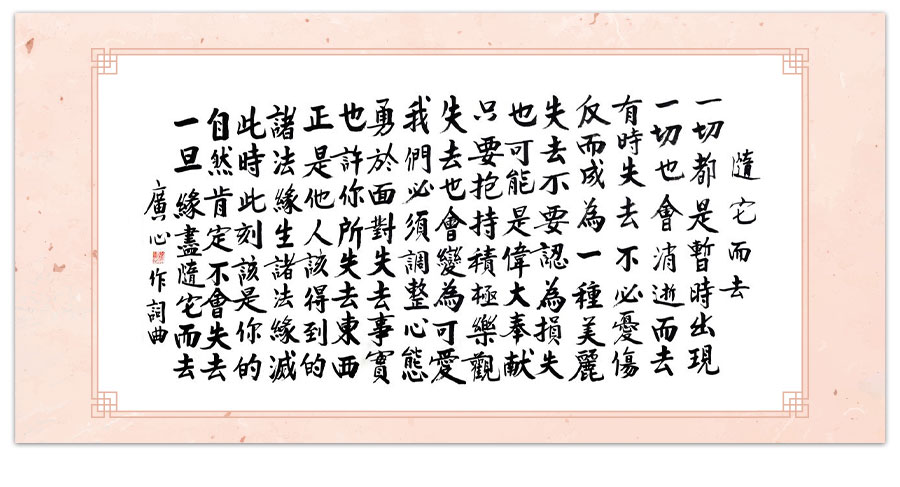 隨它而去
一切都是暫時出現
一切也會消逝而去
有時失去不必憂傷
反而成為一種美麗
失去不要認為損失
也可能是偉大奉献
只要抱持積極樂觀
失去也會變為可愛
我們必須調整心態
勇於面對失去事實
也許你所失去東西
正是他人該得到的
諸法緣生諸法緣滅
此時此刻該是你的
自然肯定不會失去
一旦緣盡隨它而去
廣心作詞曲